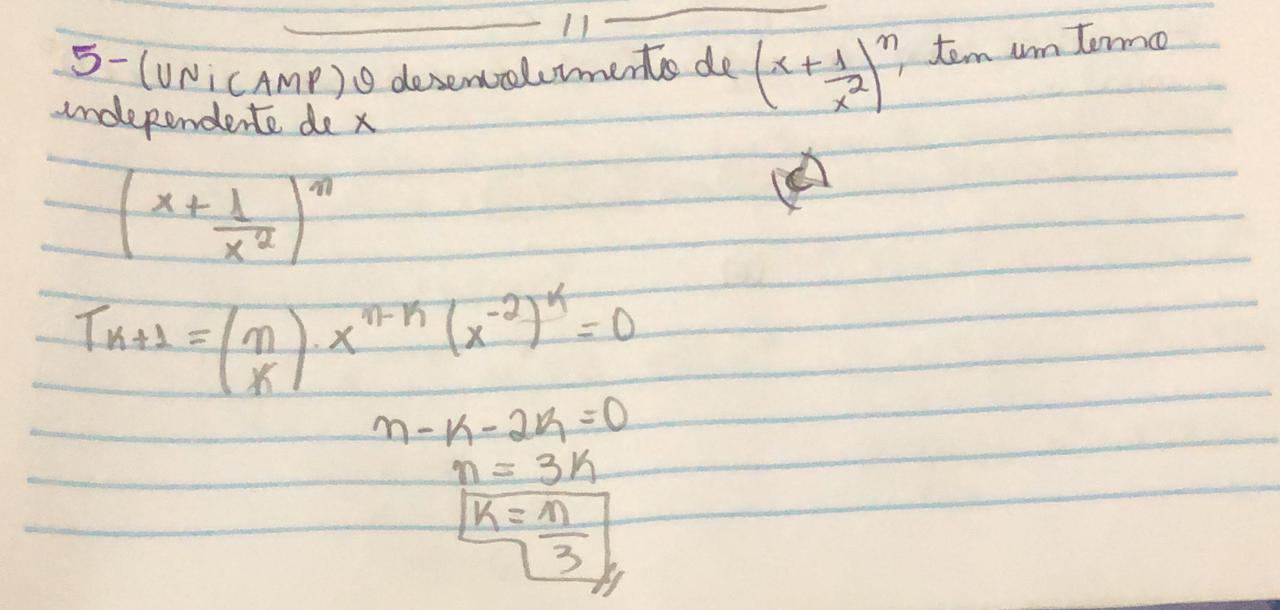 11
5-(UNiCAMP) O desenvolvimento de (x + 1/x²)ⁿ, tem um termo
independente de x
(x + 1/x²)ⁿ
T_{K+1} = (n K) . x^{n-K} (x^{-2})^K = 0
n - K - 2K = 0
n = 3K
K = n/3